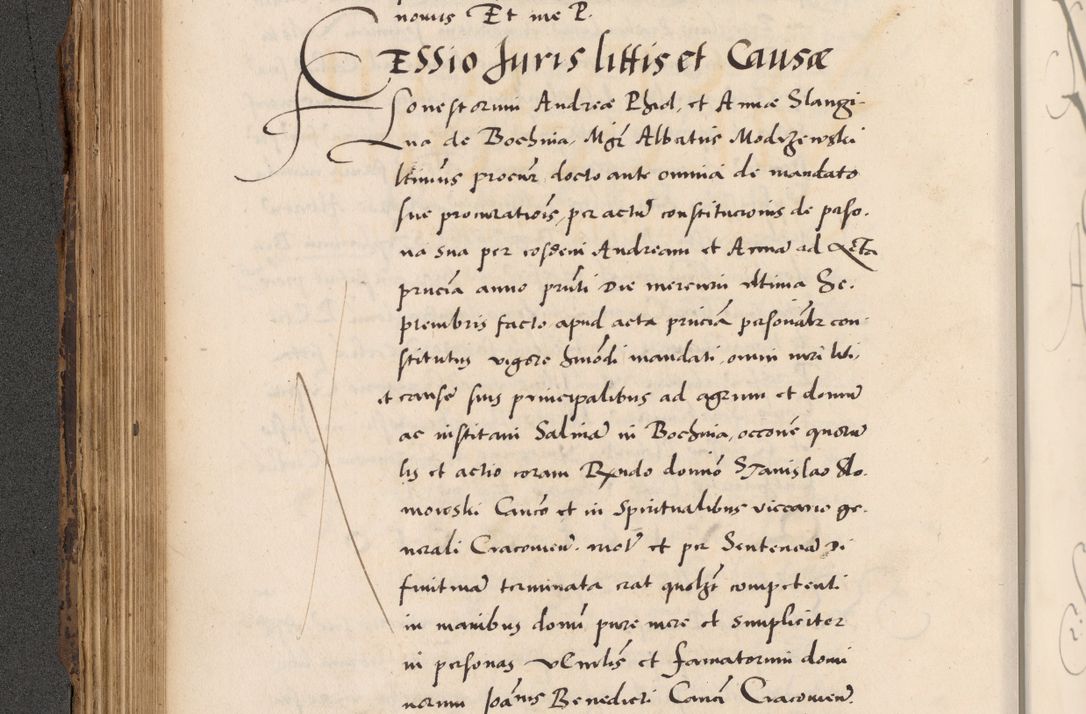 novus Et me P.
CESSIO Juris littis et Causæ
Honestorum Andreæ Phid, et Annæ Slangi-
na de Bochnia, Mgr Albertus Modrzewski
ltimus procur docto ante omnia de mandato
sue procurationis, per actu constitucionis de perso-
na sua per eosdem Andream et Anna ad Acta
pncia anno pnti die mercurii ultima Se-
ptembris facto apud acta pncia personalr con-
stitutus vigore hmodi mandati, omni iuri liti,
et cause suis principalibus ad agrum et domu
ac institam Salina in Bochnia, occone quoru
lis et actio coram Rndo domno Stanislao Slo-
mowski Canco et in Spiritualibus viccario ge-
nerali Cracovien. mot et per Sententia Di
finitiua terminata erat quolzt competenti
in manibus domi pure mere et simpliciter
in personas vlenlis et famatorum domi
norum Joanis Benedicti Canci Cracovien